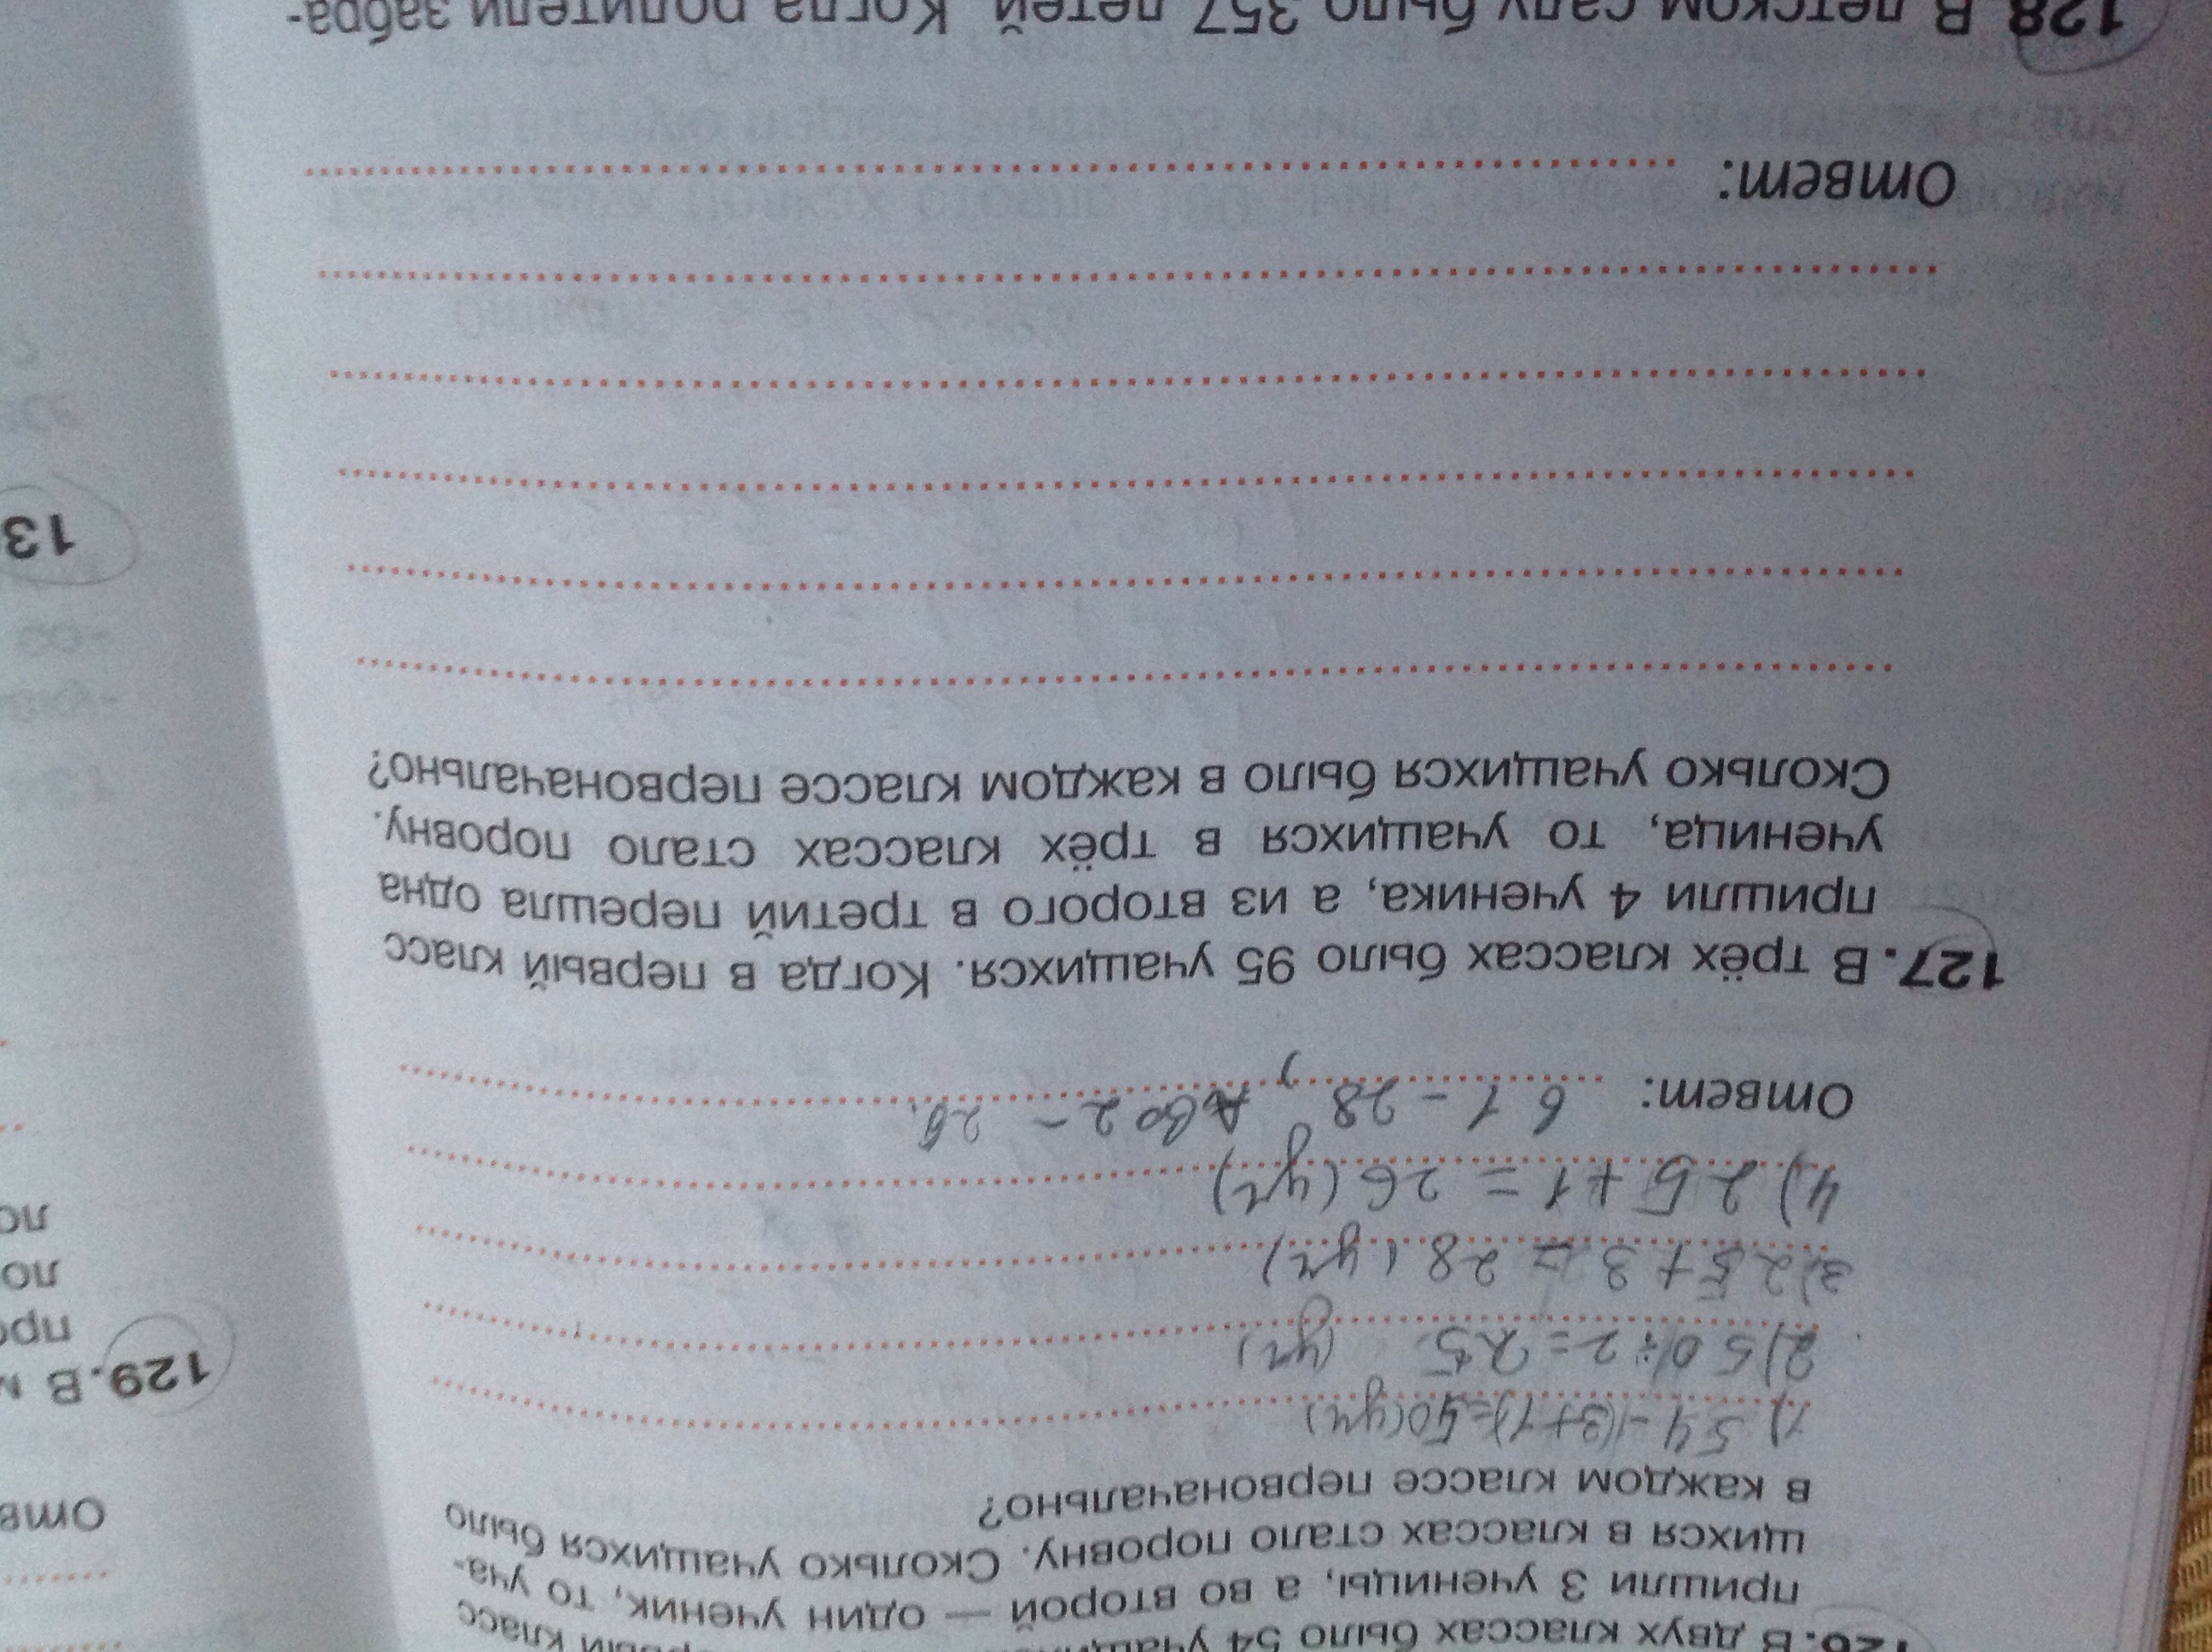 126. В двух классах было 54 класс
пришли 3 ученицы, а во второй — один ученик, то уча-
щихся в классах стало поровну. Сколько учащихся было
в каждом классе первоначально?
1) 54-(3+1)=50(уч)
2) 50:2=25 (уч)
3) 25+3=28(уч)
4) 25+1=26(уч)
Ответ: в 1-28, во 2-
127. В трёх классах было 95 учащихся. Когда в первый класс
пришли 4 ученика, а из второго в третий перешла одна
ученица, то учащихся в трёх классах стало поровну.
Сколько учащихся было в каждом классе первоначально?
Ответ:
128. В детском саду было 357 детей. Когда родители забра-
129. В
13